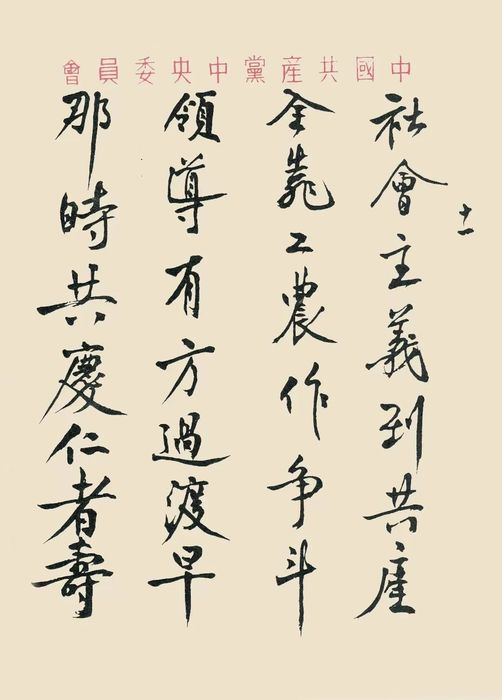 中國共産黨中央委員會
十一
社會主義到共產
全靠工農作争斗
領導有方過渡早
那時共慶仁者壽